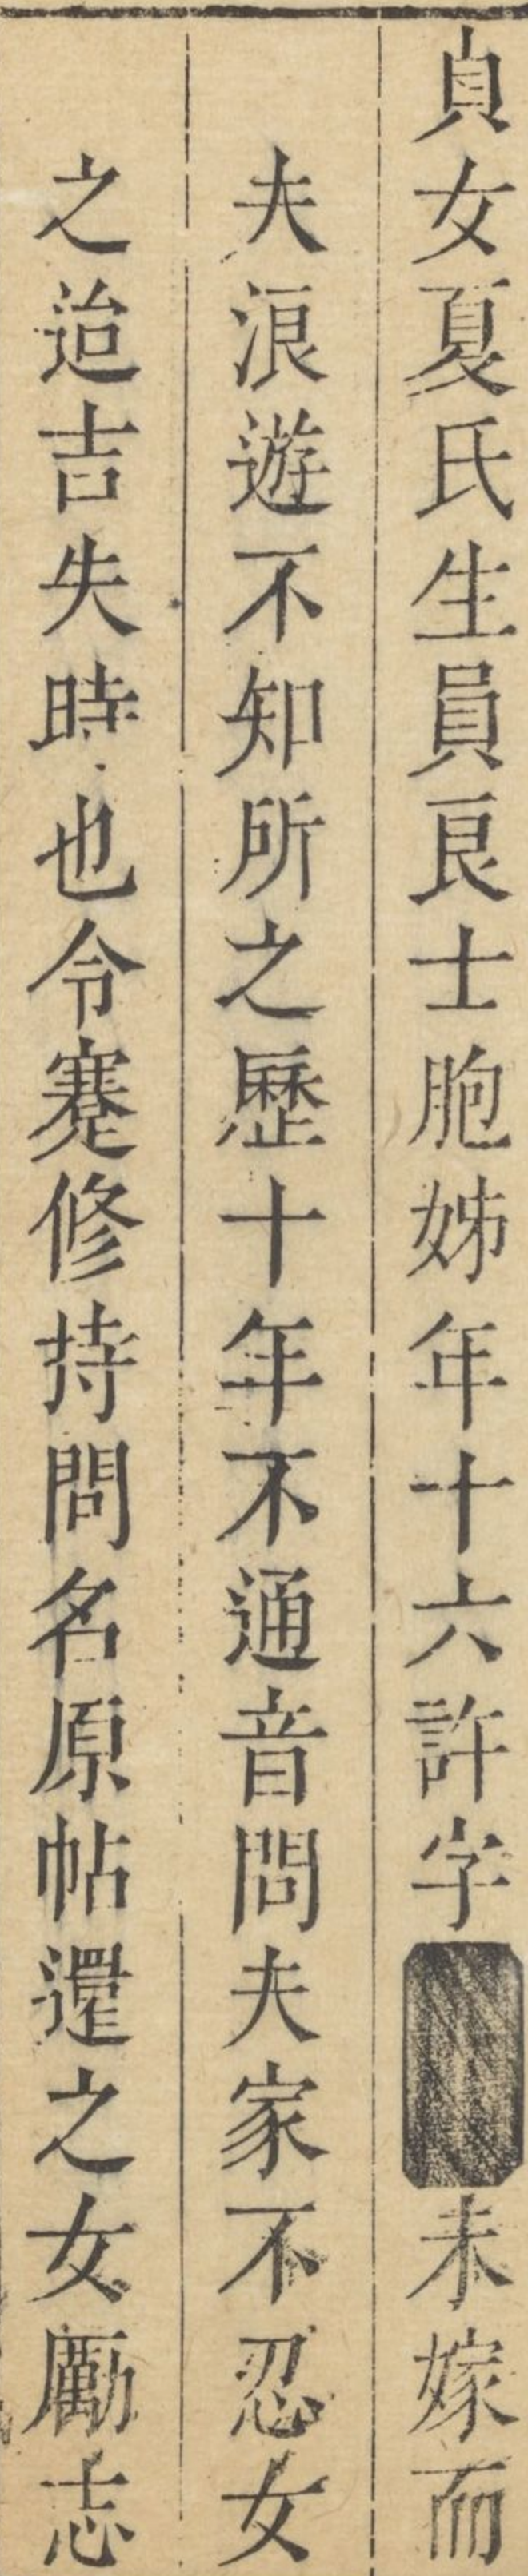 貞女夏氏生員良士胞姊年十六許字未嫁而
夫浪遊不知所之歷十年不通音問夫家不忍女
之迨吉失時也令蹇修持問名原帖還之女勵志